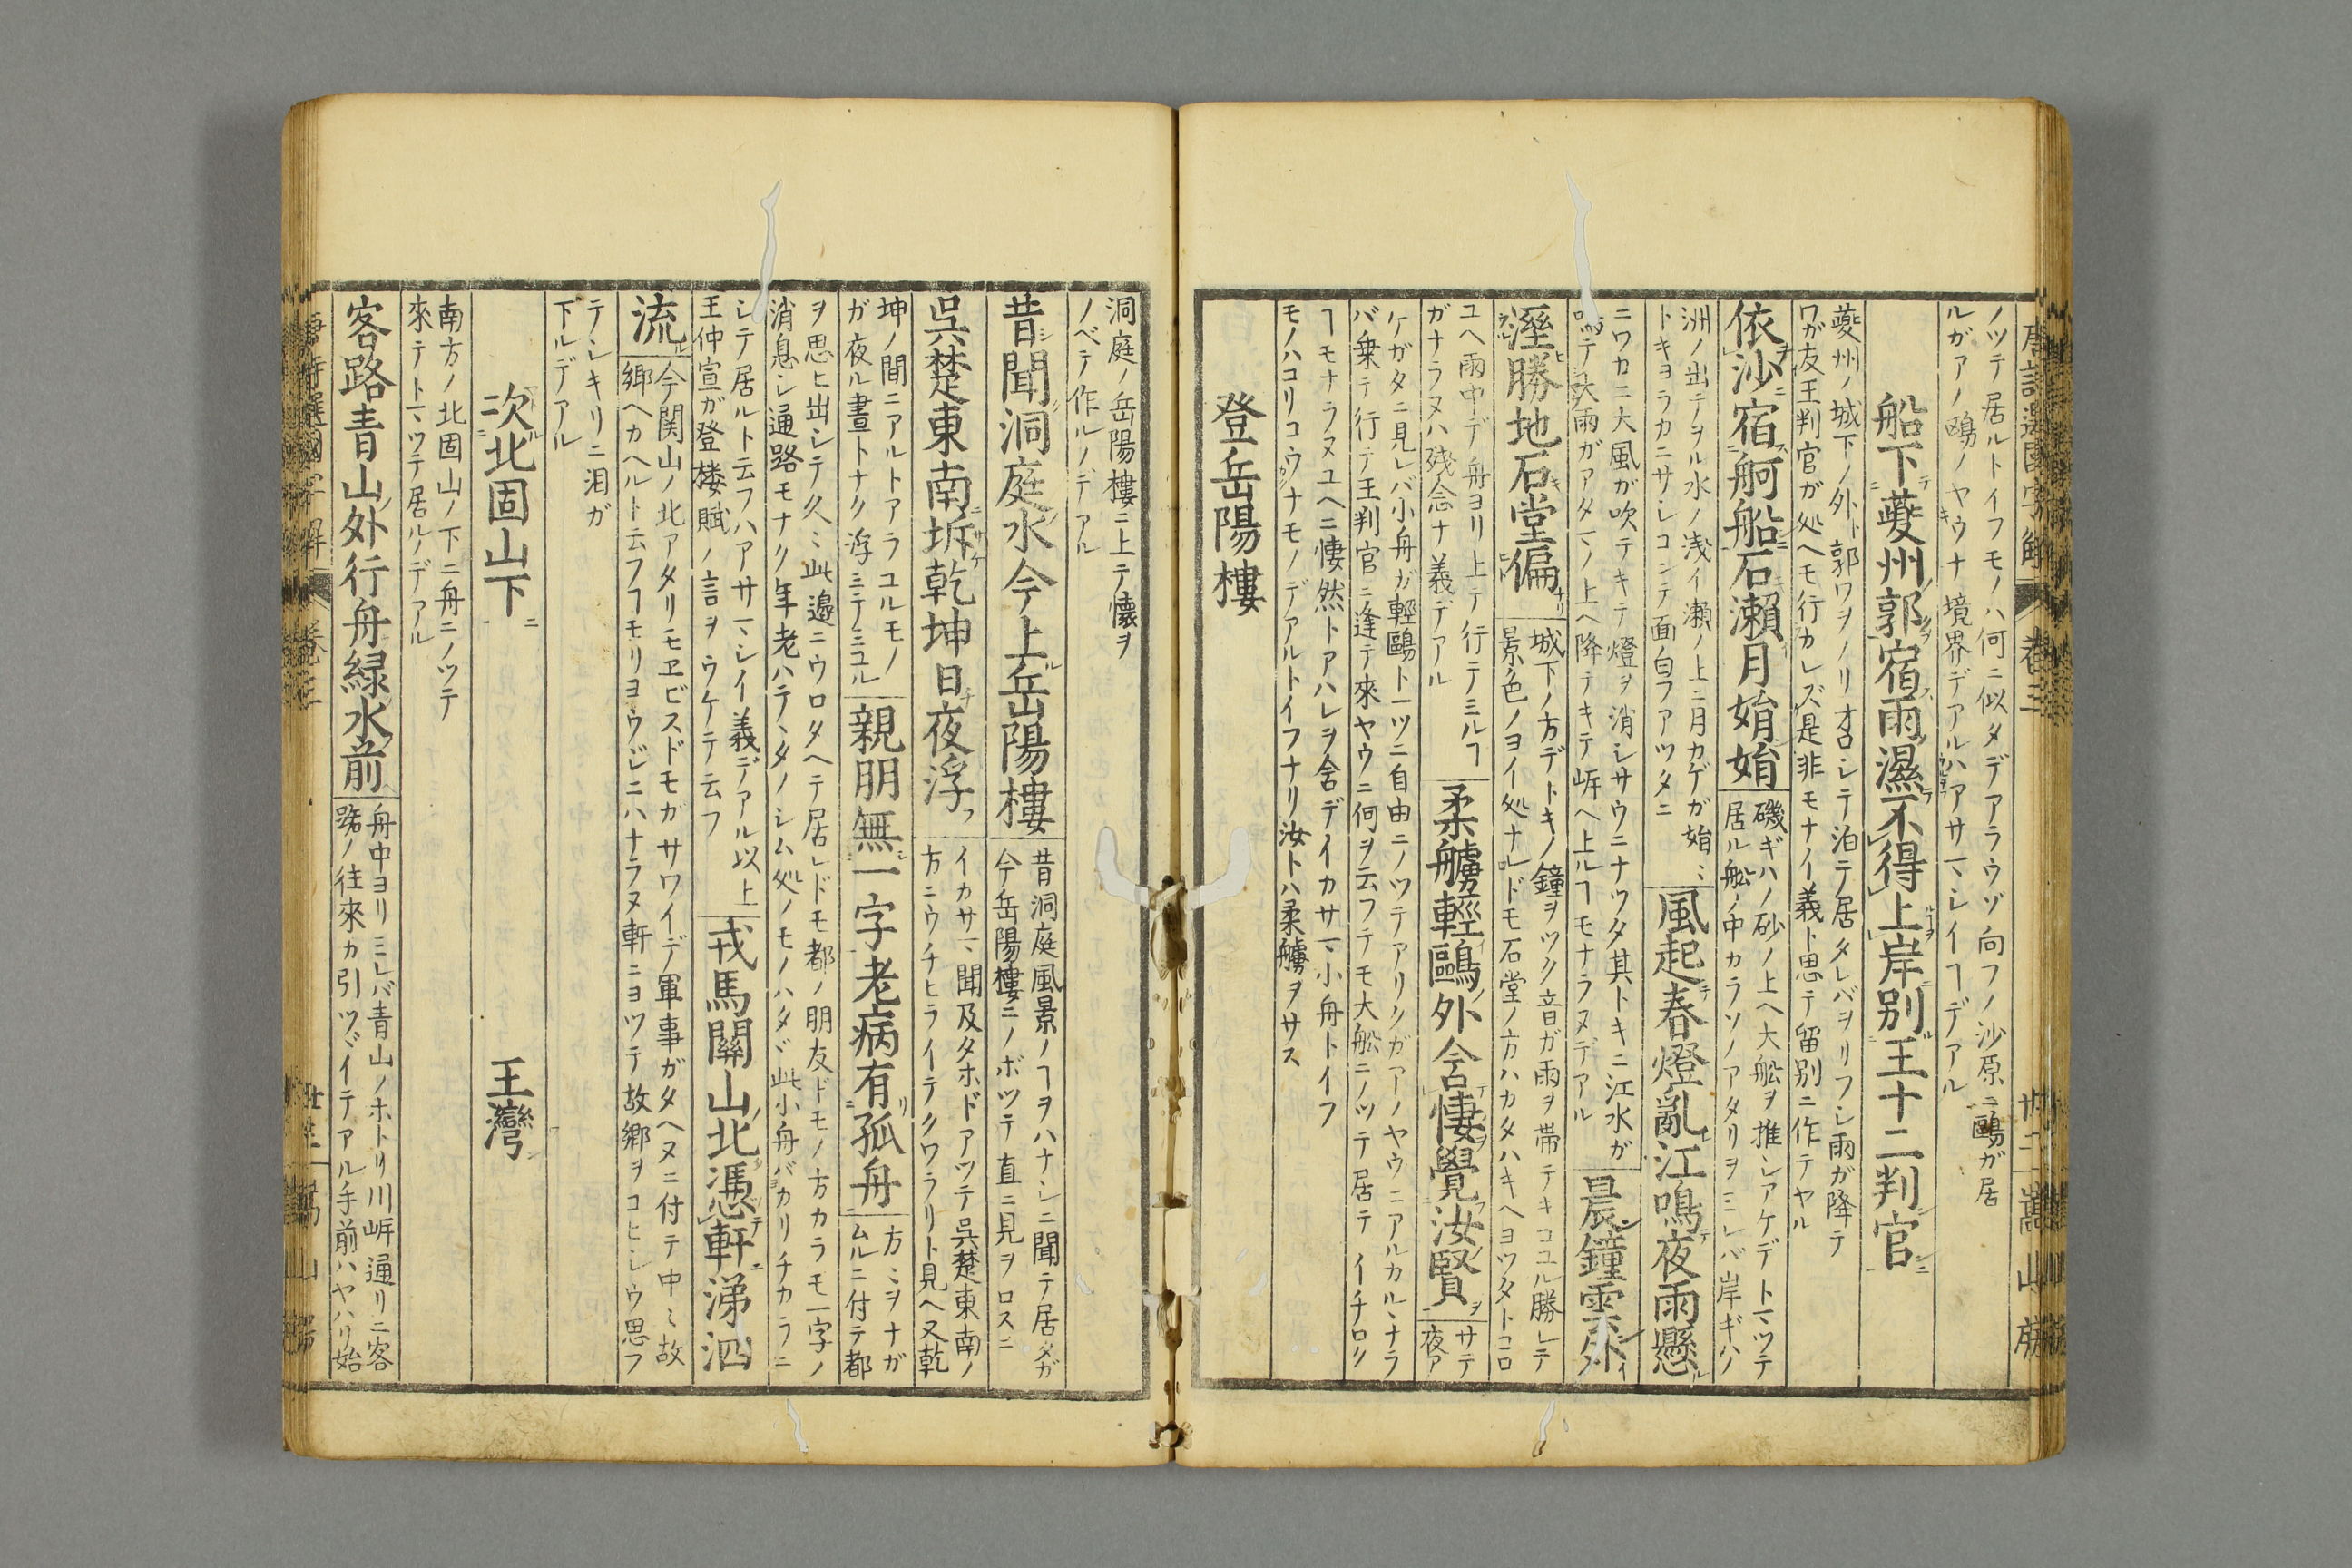 唐詩選國字解 巻三 嵩山房
ノツテ居ルトイフモノハ何ニ似タデアラウゾ向フノ沙原ニ鷗ガ居
ルガアノ鷗ノヤウナ境界デアルハアサマシイヿデアル
船下夔州郭宿雨濕不得上岸別王十二判官
夔州ノ城下ノ外ト郭ワヲノリ出シテ泊テ居タレバヲリフシ雨ガ降テ
ワガ友王判官ガ処ヘモ行カレズ是非モナイ義ト思テ留別ニ作テヤル
依沙宿舸船石瀬月娟娟
磯ギハノ砂ノ上ヘ大舩ヲ推シアゲデトマツテ
居ル舩ノ中カラソノアタリヲミレバ岸ギハノ
洲ノ出テヲル水ノ浅イ瀬ノ上ニ月カゲガ娟〻
トキヨラカニサシコンテ面白フアツタニ
風起春燈亂江鳴夜雨懸
ニワカニ大風ガ吹テキテ燈ヲ消シサウニナツタ其トキニ江水ガ
鳴テ大雨ガアタマノ上ヘ降テキテ岍ヘ上ルヿモナラヌデアル
晨鐘雲外
溼勝地石堂偏
城下ノ方デトキノ鐘ヲツク音ガ雨ヲ帯テキコユル勝レテ
景色ノヨイ処ナレドモ石堂ノ方ハカタハキヘヨツタトコロ
ユヘ雨中デ舟ヨリ上テ行テミルヿ
ガナラヌハ残念ナ義デアル
柔艣輕鷗外含悽覺汝賢
サテ
夜ア
ケガタニ見レバ小舟ガ輕鷗ト一ツニ自由ニノツテアリクガアノヤウニアルカルヽナラ
バ乗テ行テ王判官ニ逢テ來ヤウニ何ヲ云フテモ大舩ニノツテ居テイチロク
ヿモナラヌユヘニ悽然トアハレヲ含デイカサマ小舟トイフ
モノハコリコウナモノデアルトイフナリ汝トハ柔艣ヲサス
登岳陽樓
洞庭ノ岳陽樓ニ上テ懐ヲ
ノベテ作ルノデアル
昔聞洞庭水今上岳陽樓
昔洞庭風景ノヿヲハナシニ聞テ居タガ
今岳陽樓ニノボツテ直ニ見ヲロスニ
呉楚東南坼乾坤日夜浮
イカサマ聞及タホドアツテ呉楚東南ノ
方ニウチヒライテクワラリト見ヘ又乾
坤ノ間ニアルトアラユルモノ
ガ夜ル晝トナク浮ミテミユル
親朋無一字老病有孤舟
方〻ヲナガ
ムルニ付テ都
ヲ思ヒ出シテ久〻此邉ニウロタヘテ居レドモ都ノ朋友ドモノ方カラモ一字ノ
消息シ通路モナク年老ハテヽタノシム処ノモノハタヾ此小舟バカリチカラニ
シテ居ルト云フハアサマシイ義デアル以上
王仲宣ガ登楼賦ノ言ヲウケテ云フ
戎馬關山北憑軒涕泗
流
今関山ノ北アタリモヱビスドモガサワイデ軍事ガタヘヌニ付テ中〻故
郷ヘカヘルト云フヿモリヨウジニハナラヌ軒ニヨツテ故郷ヲコヒシウ思フ
テシキリニ泪ガ
下ルデアル
次北固山下 王灣
南方ノ北固山ノ下ニ舟ニノツテ
來テトマツテ居ルノデアル
客路青山外行舟緑水前
舟中ヨリミレバ青山ノホトリ川岍通リニ客
路ノ往來カ引ツヾイテアル手前ハヤハリ始
唐詩選國字解 巻三